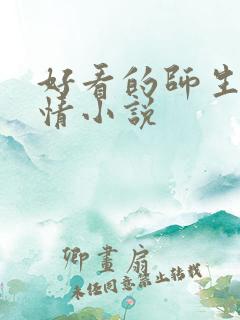 好看的师生
情小说
卿畫扇
未经同意禁止转载